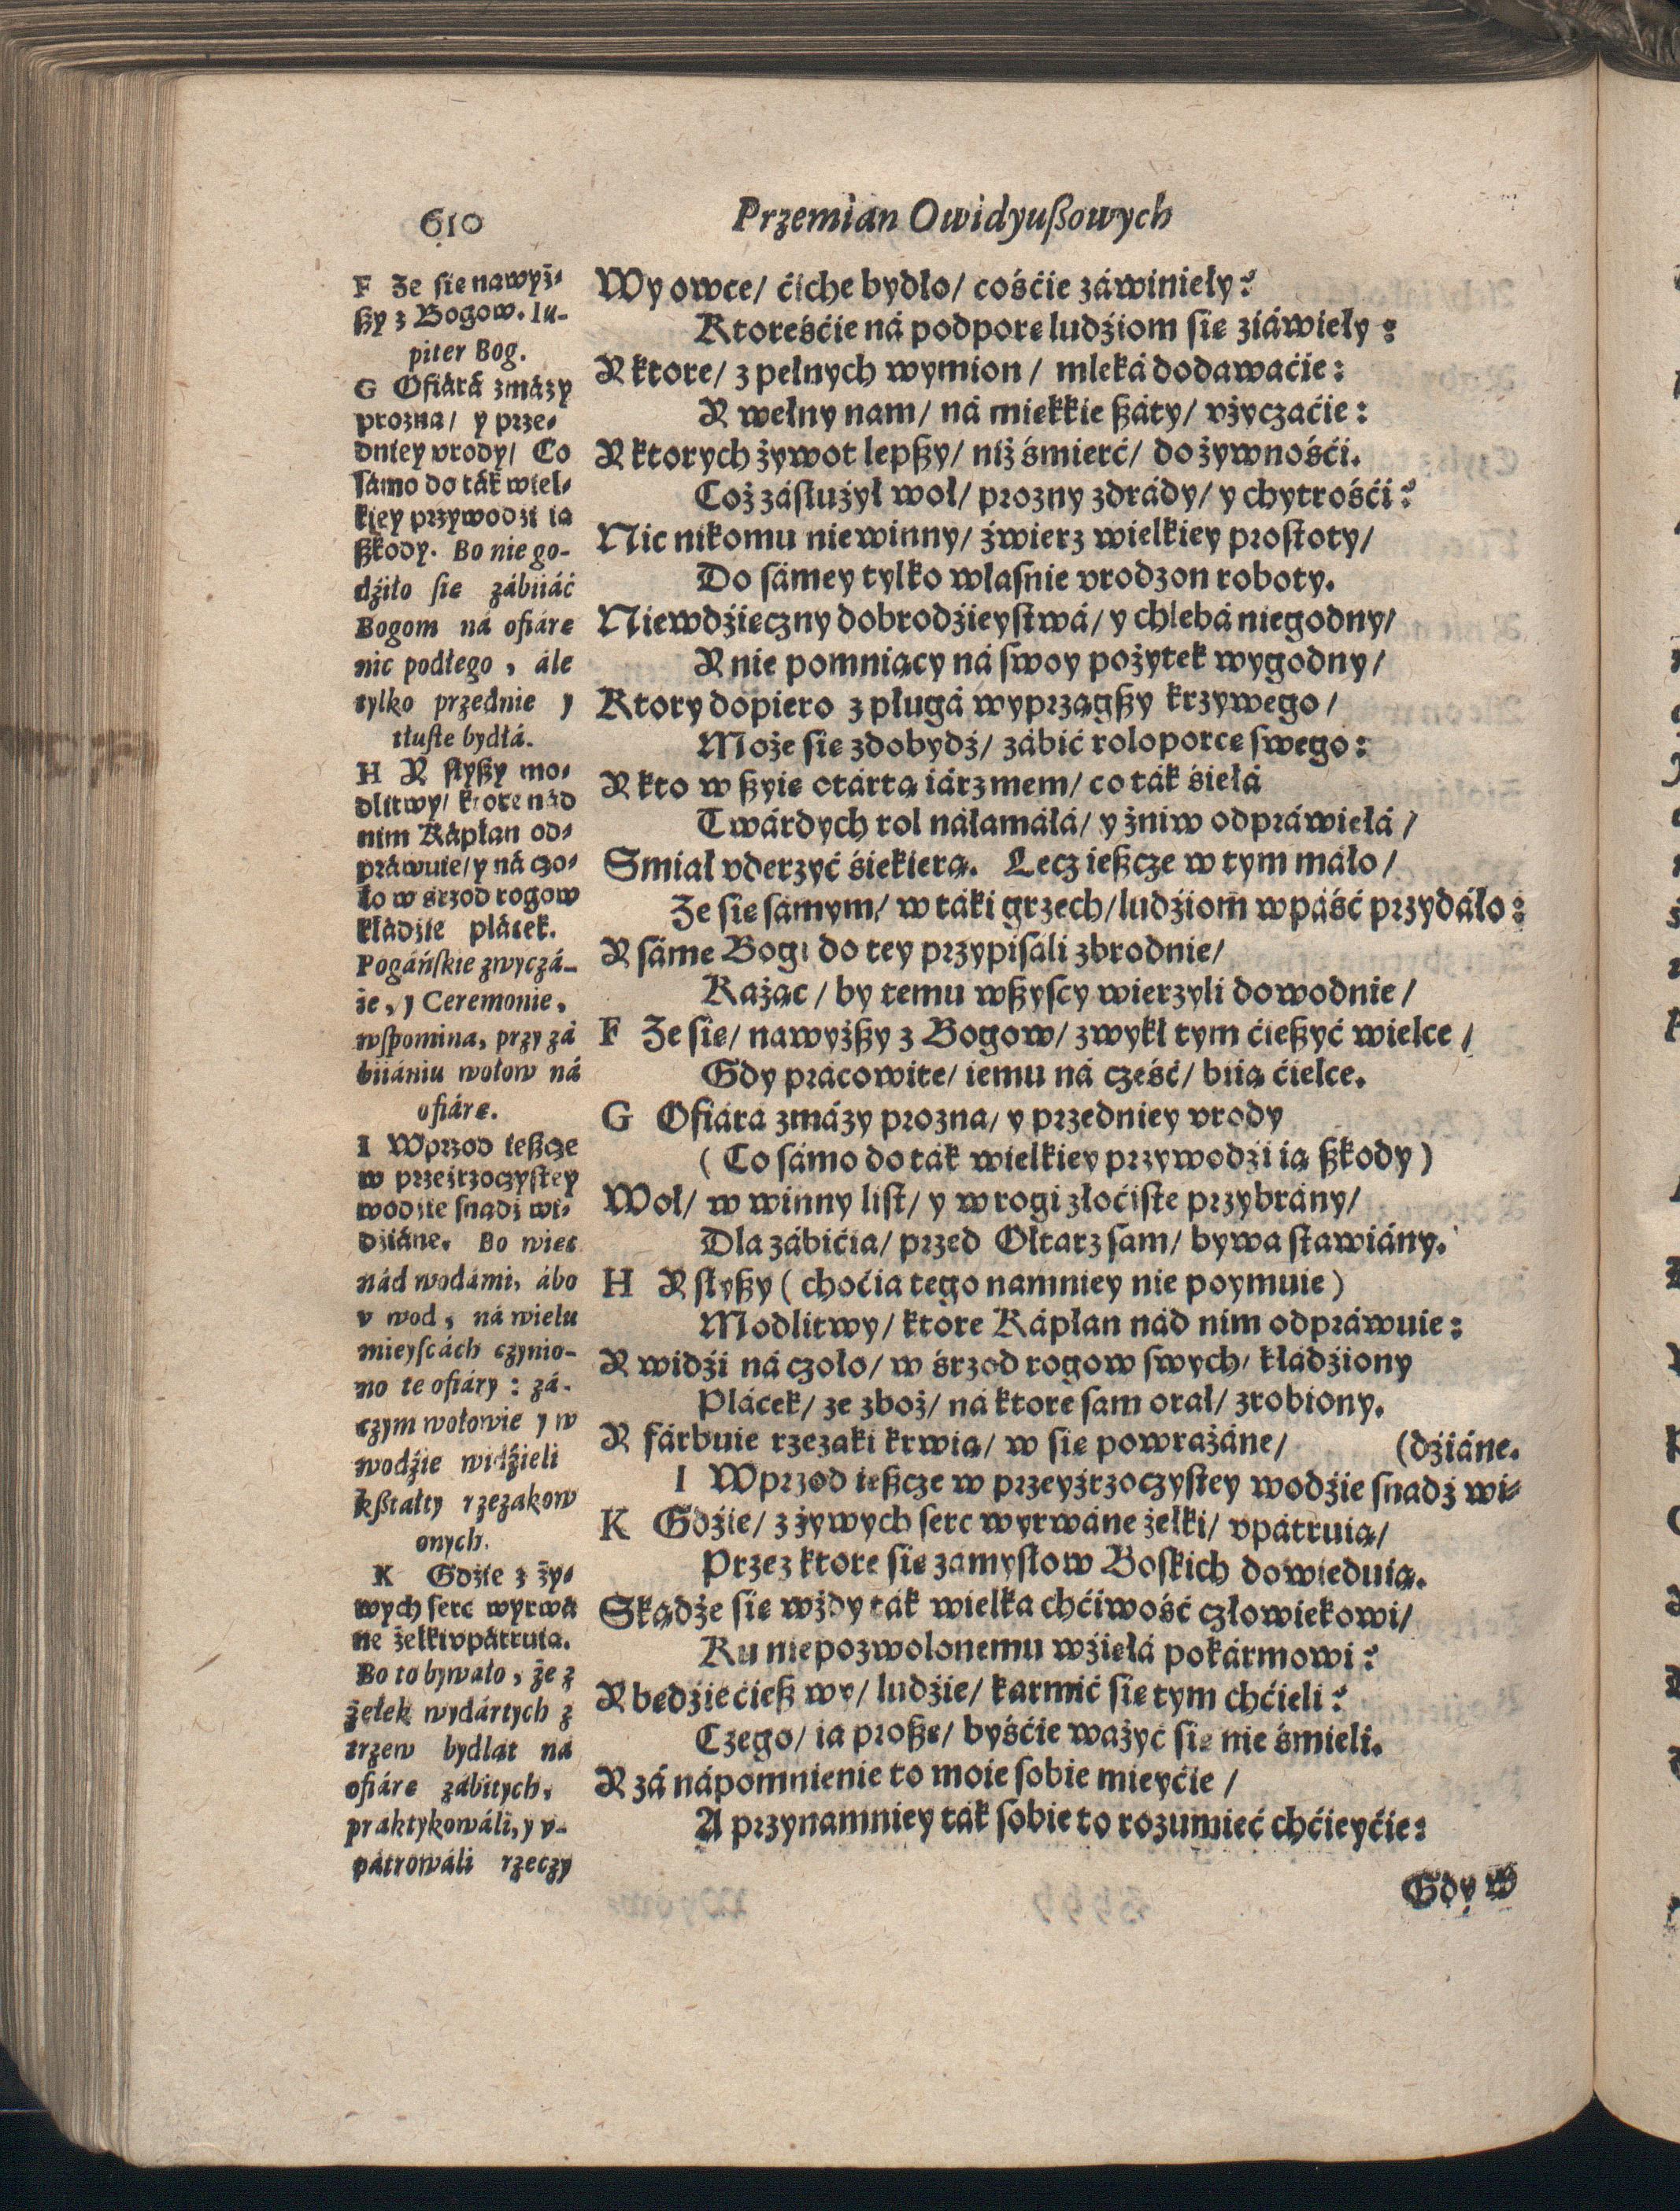 610
Przemian Owidyußowych
F Że się nawyż-
ßy z Bogow. Iu-
piter Bog.
G Ofiárá zmázy
prozna/ y prze-
dniey vrody/ Co
sámo do ták wiel-
kiey przywodzi ią
ßkody. Bo nie go-
dźiło się zábiiáć
Bogom ná ofiárę
nic podłego, ále
tylko przednie y
tłuste bydłá.
H Y słyßy mo-
dlitwy/ ktore nád
nim Kápłan od-
práwuie/ y ná czo-
ło w śrzod rogow
kłádźie plácek.
Pogáńskie zwyczá-
ie, y Ceremonie,
wspomina, przy zá
biiániu wołow ná
ofiárę.
I Wprzod ießcze
w przeźrzoczystey
wodźie snadź wi-
dźiáne. Bo więc
nád wodámi, ábo
v wod, ná wielu
mieyscách czynio-
no te ofiáry : zá-
czym wołowie y w
wodźie widźieli
kßtałty rzezakow
onych.
K Gdźie z ży-
wych serc wyrwá
ne żełki vpátruią.
Bo to bywáło, że z
żełek wydártych z
trzew bydląt ná
ofiárę zábitych,
praktykowáli, y v-
pátrowáli rzeczy
Wy owce/ ćiche bydło/ cośćie záwiniely?
Ktoreśćie ná podporę ludźiom się ziáwiły:
Y ktore/ z pełnych wymion/ mleká dodawaćie:
Y wełny nam/ ná miękkie ßáty/ vżyczaćie:
Y ktorych żywot lepßy/ niż śmierć/ do żywnośći.
Coż zásłużył woł/ prozny zdrády/ y chytrośći?
Nic nikomu niewinny/ źwierz wielkiey prostoty/
Do sámey tylko własnie vrodzon roboty.
Niewdźięczny dobrodźieystwá/ y chlebá niegodny/
Y nie pomniący ná swoy pożytek wygodny/
Ktory dopiero z pługá wyprzągßy krzywego/
Może się zdobydź/ zábić roloporcę swego:
Y kto w ßyię otártą iárzmem/ co ták śiełá
Twárdych rol náłamáłá/ y żniw odpráwiełá/
Smiał vderzyć śiekierą. Lecz ießcze w tym máło/
Ze się sámym/ w táki grzech/ ludźiom wpáść przydáło:
Y sáme Bogi do tey przypisáli zbrodnie/
Każąc/ by temu wßyscy wierzyli dowodnie/
F Że się/ nawyżßy z Bogow/ zwykł tym ćießyć wielce/
Gdy prácowite/ iemu ná cześć/ biią ćielce.
G Ofiárá zmázy prozna/ y przedniey vrody
(Co sámo do ták wielkiey przywodźi ią ßkody)
Woł/ w winny list/ y w rogi złoćiste przybrány/
Dla zábićia/ przed Ołtarz sam/ bywa stawiány.
H Y słyßy (choćia tego namniey nie poymuie)
Modlitwy/ ktore Kápłan nád nim odpráwuie:
Y widźi ná czoło/ w śrzod rogow swych/ kłádźiony
Plácek/ ze zboż/ ná ktore sam orał/ zrobiony.
Y fárbuie rzezaki krwią/ w się powrażáne/ (dźiáne.
I Wprzod ießcze w przeyźrzoczystey wodźie snadź wi-
K Gdźie/ z żywych serc wyrwáne żełki/ vpátruią/
Przez ktore się zamysłow Boskich dowieduią.
Skądże się wżdy ták wielka chćiwość człowiekowi/
Ku niepozwolonemu wźięłá pokármowi?
Y będźiećieß wy/ ludźie/ karmić się tym chćieli?
Czego/ ia proßę/ byśćie ważyć się nie śmieli.
Y zá nápomnienie to moie sobie mieyćie/
A przynamniey ták sobie to rozumieć chćieyćie:
Gdy w